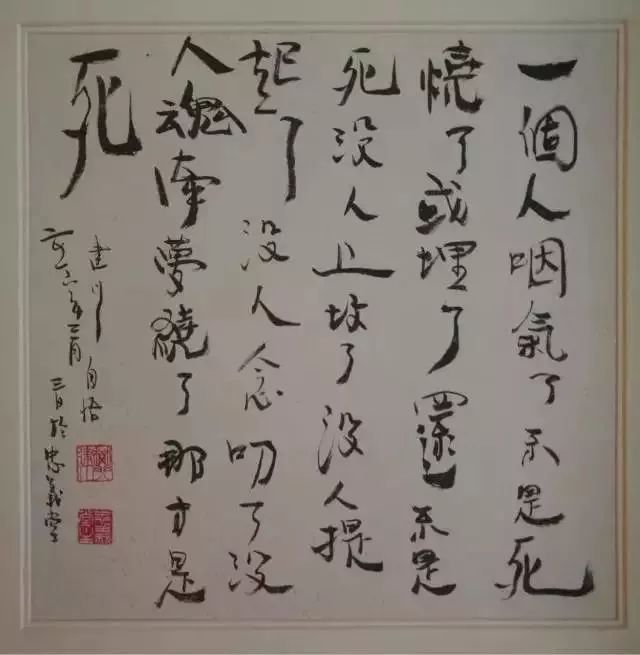 一個人咽氣了不是死
燒了或埋了還不是
死没人上坟了没人提
起了没人念叨了没
人魂牽夢繞了那才是
死
建川自悟
年二月
三日於忠義堂